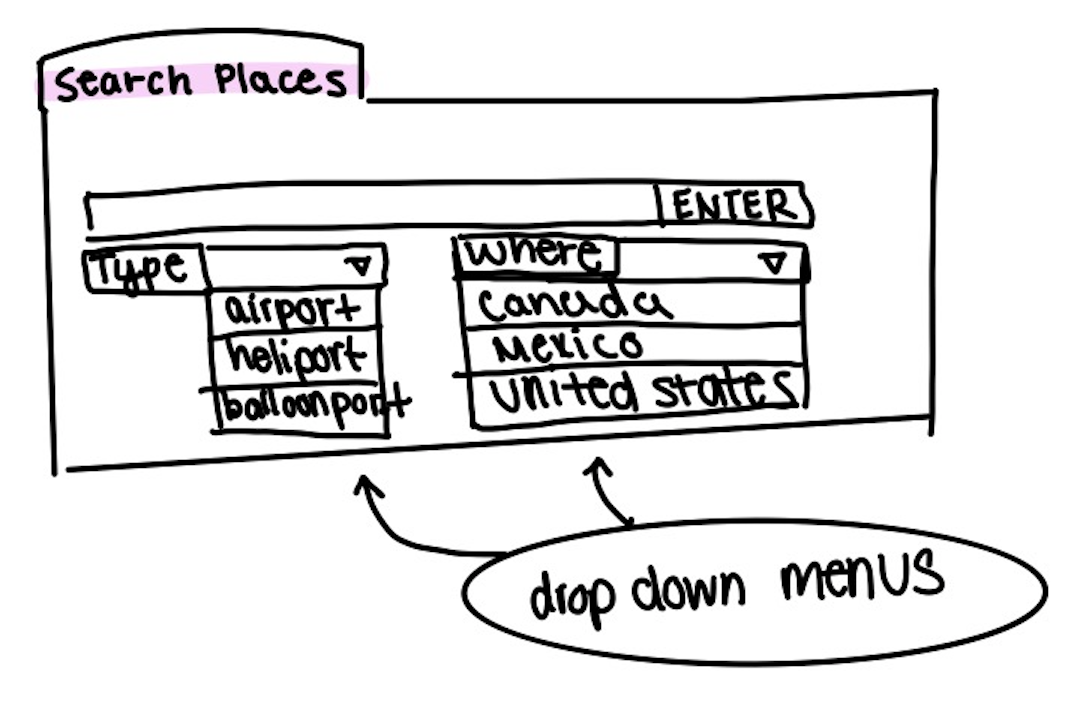 Search Places
ENTER
Type
where
airport
heliport
balloonport
canada
Mexico
united states
drop down menus